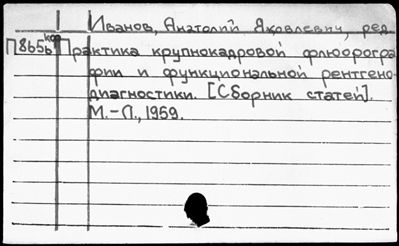 Иванов, Анатолий Яковлевич, ред.
П865б кф Практика крупнокадровой флюорогра
фии и функциональной рентгено-
диагностики. [Сборник статей].
М.-Л., 1959.